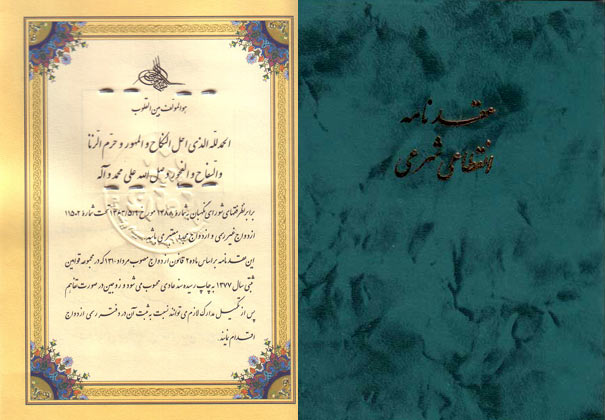 هوالمؤلف بین القلوب
الحمد لله الذی احل النکاح و المهور و حرم الزنا
والسفاح و الفجور و صلی الله علی محمد و آله
برابر نظر فقهای شورای نگهبان به شماره ۱۴۸۸ مورخ ۱۳۶۳/۵/۹ تحت شماره ۱۱۵۰۲
ازدواج غیر رسمی و ازدواج مجدد معتبر می باشد.
این عقدنامه بر اساس ماده ۲ قانون ازدواج مصوب مرداد ۱۳۱۰ که در مجموعه قوانین
ثبتی سال ۱۳۷۷ به چاپ رسیده سند عادی محسوب می شود و زوجین در صورت تفاهم
پس از تکمیل مدارک لازم می توانند نسبت به ثبت آن در دفتر رسمی ازدواج
اقدام نمایند.
عقدنامه
انقطاعی شرعی